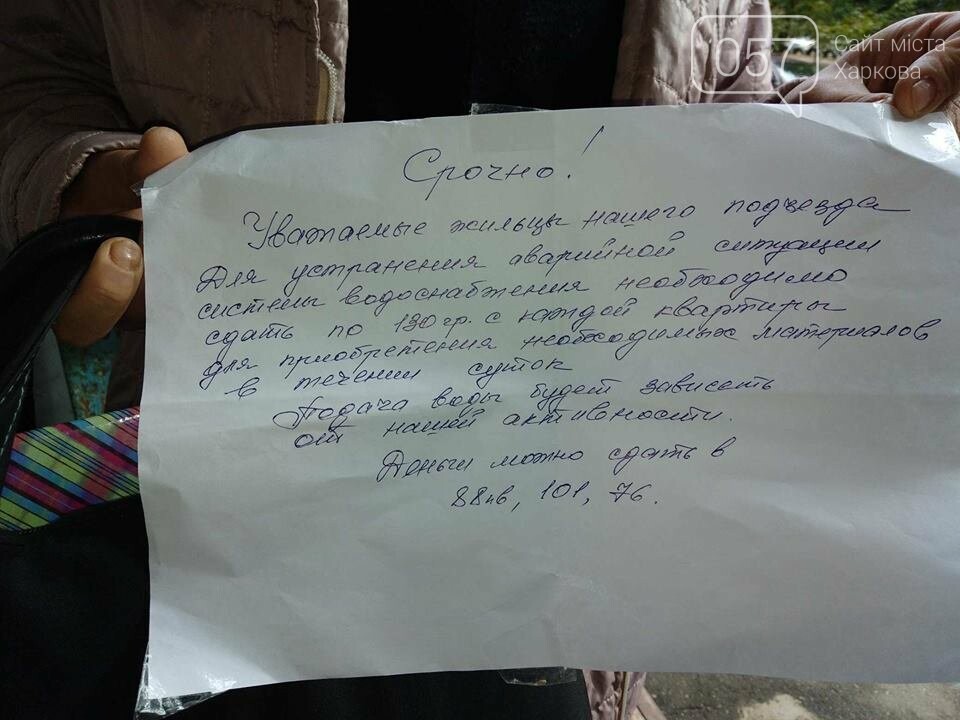 057
Сайт міста
Харкова
Срочно!
Уважаемые жильцы нашего подъезда
Для устранения аварийной ситуации
системы водоснабжения необходимо
сдать по 130 гр. с каждой квартиры
для приобретения необходимых материалов
в течении суток
Подача воды будет зависеть
от нашей активности.
Деньги можно сдать в
88 кв, 101, 76.